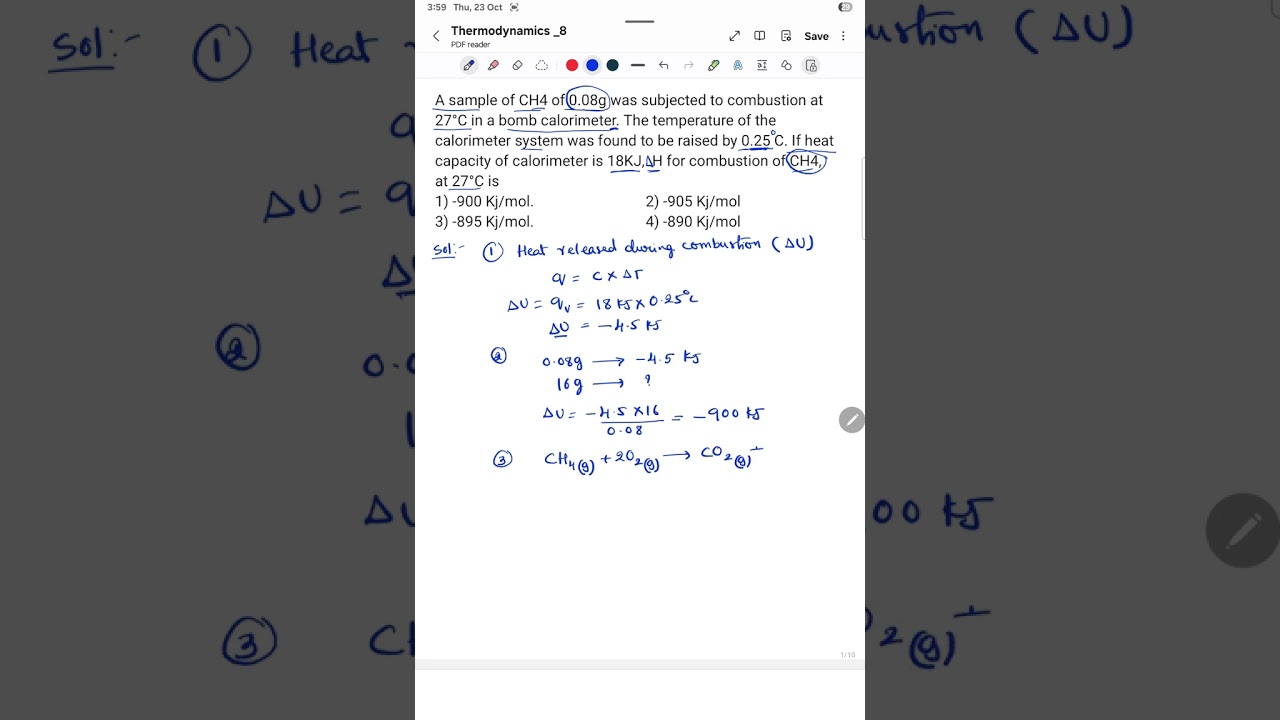 3:59 Thu, 23 Oct
29
Thermodynamics _8
PDF reader
Save
A sample of CH4 of 0.08g was subjected to combustion at
27°C in a bomb calorimeter. The temperature of the
calorimeter system was found to be raised by 0.25°C. If heat
capacity of calorimeter is 18KJ,ΔH for combustion of CH4,
at 27°C is
1) -900 Kj/mol. 2) -905 Kj/mol
3) -895 Kj/mol. 4) -890 Kj/mol
Sol:- ① Heat released during combustion (ΔU)
q = C × ΔT
ΔU = qv = 18 KJ × 0.25°C
ΔU = -4.5 KJ
② 0.08g → -4.5 KJ
16g → ?
ΔU = -4.5 × 16 / 0.08 = -900 KJ
③ CH4(g) + 2O2(g) → CO2(g) +
1/10
Sol:- ① Heat re
ustion (ΔU)
q
ΔU = q
Δ
②
0.0
1
ΔU
00 KJ
③ C
2(g) +